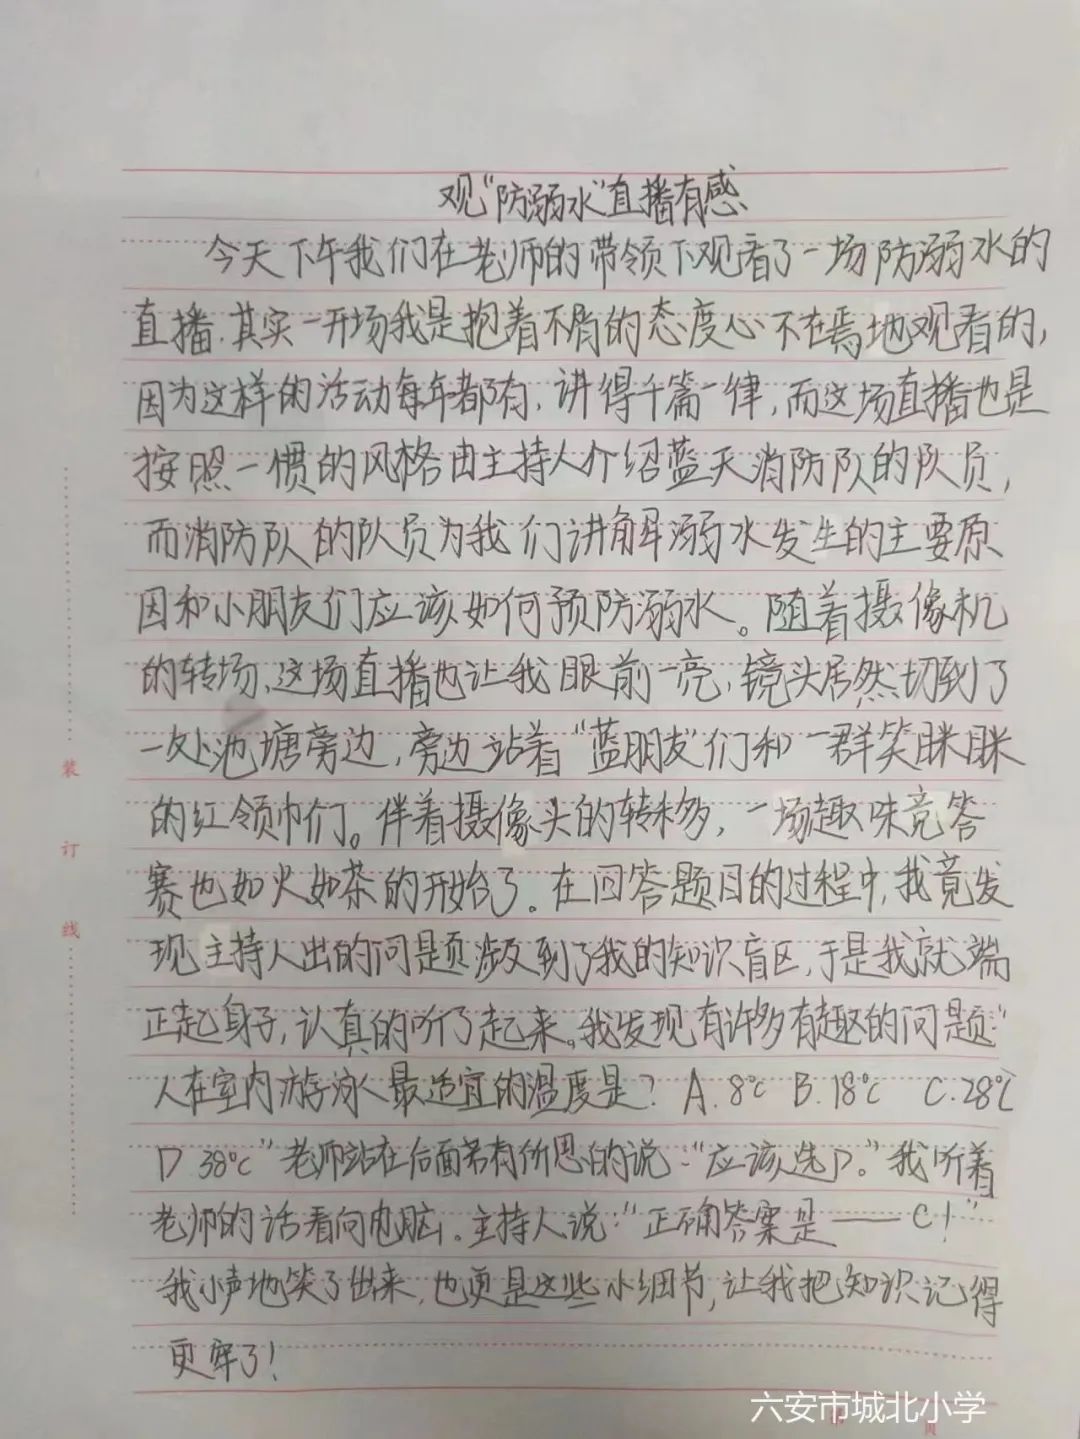 观“防溺水”直播有感
今天下午我们在老师的带领下观看了一场防溺水的
直播.其实一开场我是抱着不屑的态度心不在焉地观看的,
因为这样的活动每年都有,讲得千篇一律,而这场直播也是
按照一惯的风格由主持人介绍蓝天消防队的队员,
而消防队的队员为我们讲解溺水发生的主要原
因和小朋友们应该如何预防溺水。随着摄像机
的转场,这场直播也让我眼前一亮,镜头居然切到了
一处池塘旁边,旁边站着“蓝朋友”们和一群笑眯眯
的红领巾们。伴着摄像头的转移,一场趣味竞答
赛也如火如荼的开始了。在回答题目的过程中,我竟发
现主持人出的问题涉及到了我的知识盲区,于是我就端
正起身子,认真的听了起来。我发现有许多有趣的问题:“
人在室内游泳人最适宜的温度是? A.8℃ B.18℃ C.28℃
D 38℃”老师站在后面若有所思的说:“应该选D。”我听着
老师的话看向电脑。主持人说:“正确答案是——C!”
我小声地笑了出来,也更是这些小细节,让我把知识记得
更牢了!
装
订
线
六安市城北小学